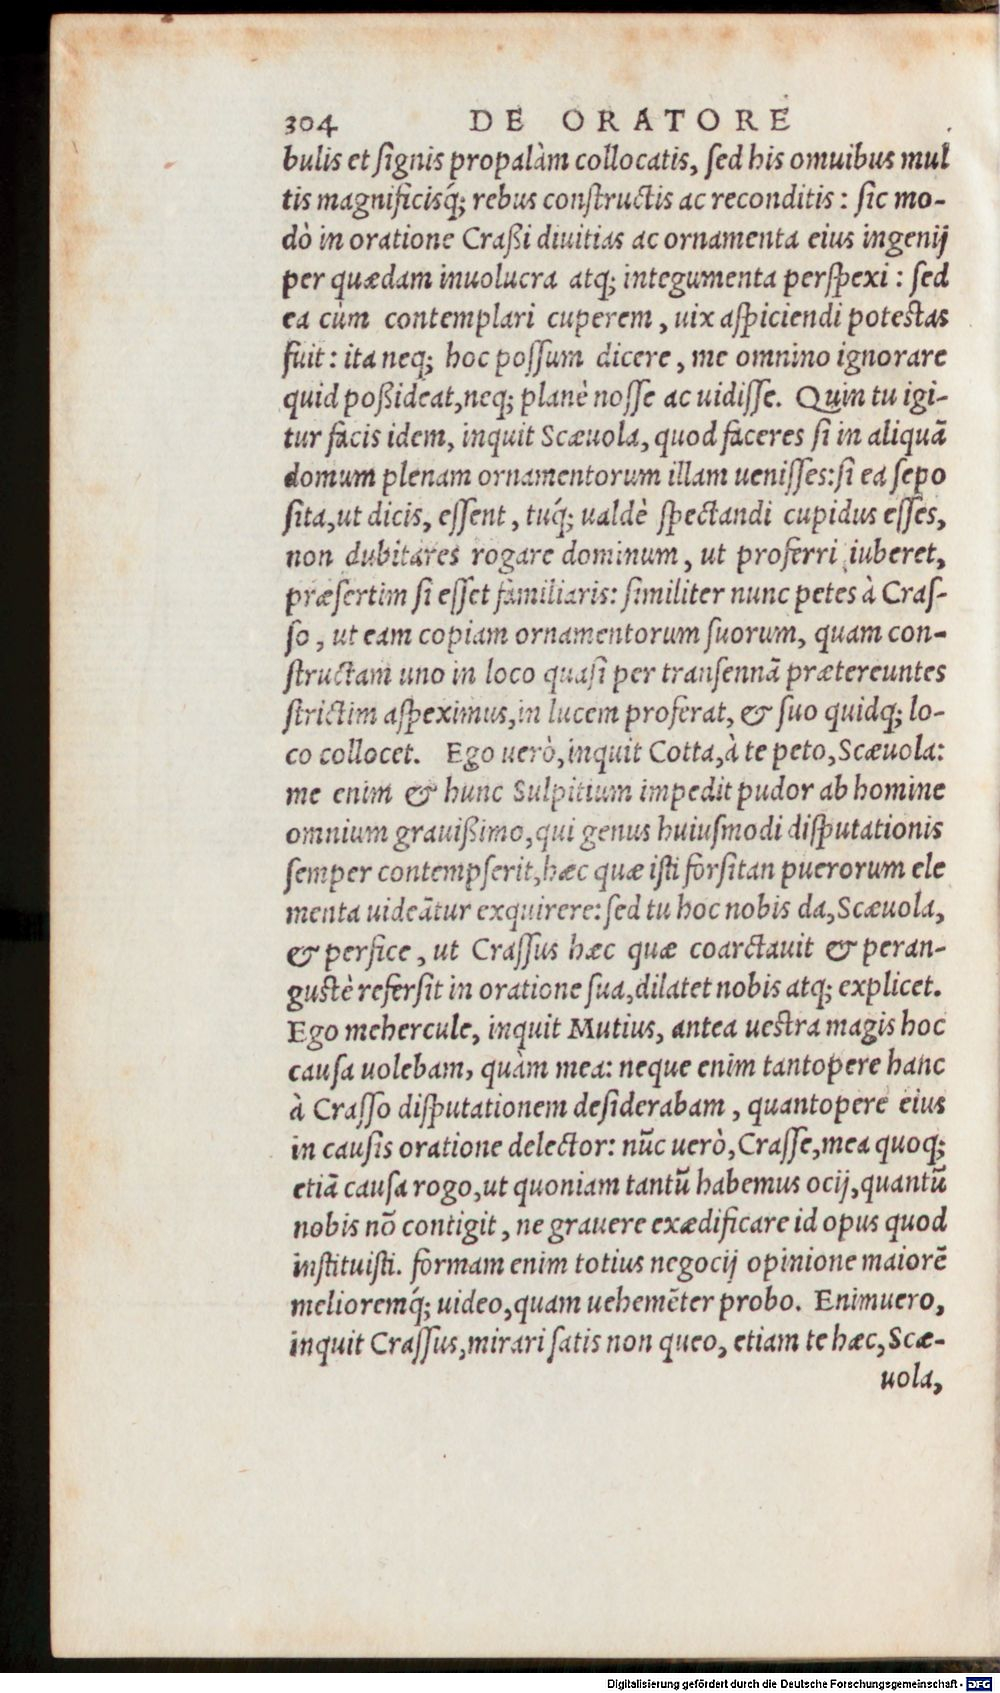 304 DE ORATORE
bulis et ſignis propalàm collocatis, ſed his omuibus mul
tis magnificisq́; rebus conſtructis ac reconditis : ſic mo-
dò in oratione Craßi diuitias ac ornamenta eius ingenij
per quædam inuolucra atq; integumenta perſpexi : ſed
ea cùm contemplari cuperem, uix aſpiciendi potestas
fuit : ita neq; hoc poſſum dicere, me omnino ignorare
quid poßideat, neq; planè noſſe ac uidiſſe. Quin tu igi-
tur facis idem, inquit Scæuola, quod faceres ſi in aliquã
domum plenam ornamentorum illam ueniſſes: ſi ea ſepo
ſita, ut dicis, eſſent, tuq́; ualdè ſpectandi cupidus eſſes,
non dubitares rogare dominum, ut proferri iuberet,
præſertim ſi eſſet familiaris: ſimiliter nunc petes à Craſ-
ſo, ut eam copiam ornamentorum ſuorum, quam con-
ſtructam uno in loco quaſi per tranſennã prætereuntes
ſtrictim aſpeximus, in lucem proferat, & ſuo quidq; lo-
co collocet. Ego uerò, inquit Cotta, à te peto, Scæuola:
me enim & hunc Sulpitium impedit pudor ab homine
omnium grauißimo, qui genus huiuſmodi diſputationis
ſemper contempſerit, hæc quæ iſti forſitan puerorum ele
menta uideãtur exquirere: ſed tu hoc nobis da, Scæuola,
& perfice, ut Craſſus hæc quæ coarctauit & peran-
gustè referſit in oratione ſua, dilatet nobis atq; explicet.
Ego mehercule, inquit Mutius, antea uestra magis hoc
cauſa uolebam, quàm mea: neque enim tantopere hanc
à Craſſo diſputationem deſiderabam, quantopere eius
in cauſis oratione delector: nũc uerò, Craſſe, mea quoq;
etiã cauſa rogo, ut quoniam tantũ habemus ocij, quantũ
nobis nõ contigit, ne grauere exædificare id opus quod
inſtituiſti. formam enim totius negocij opinione maiorẽ
melioremq́; uideo, quam uehemẽter probo. Enimuero,
inquit Craſſus, mirari ſatis non queo, etiam te hæc, Scæ-
uola,
Digitalisierung gefördert durch die Deutsche Forschungsgemeinschaft - DFG